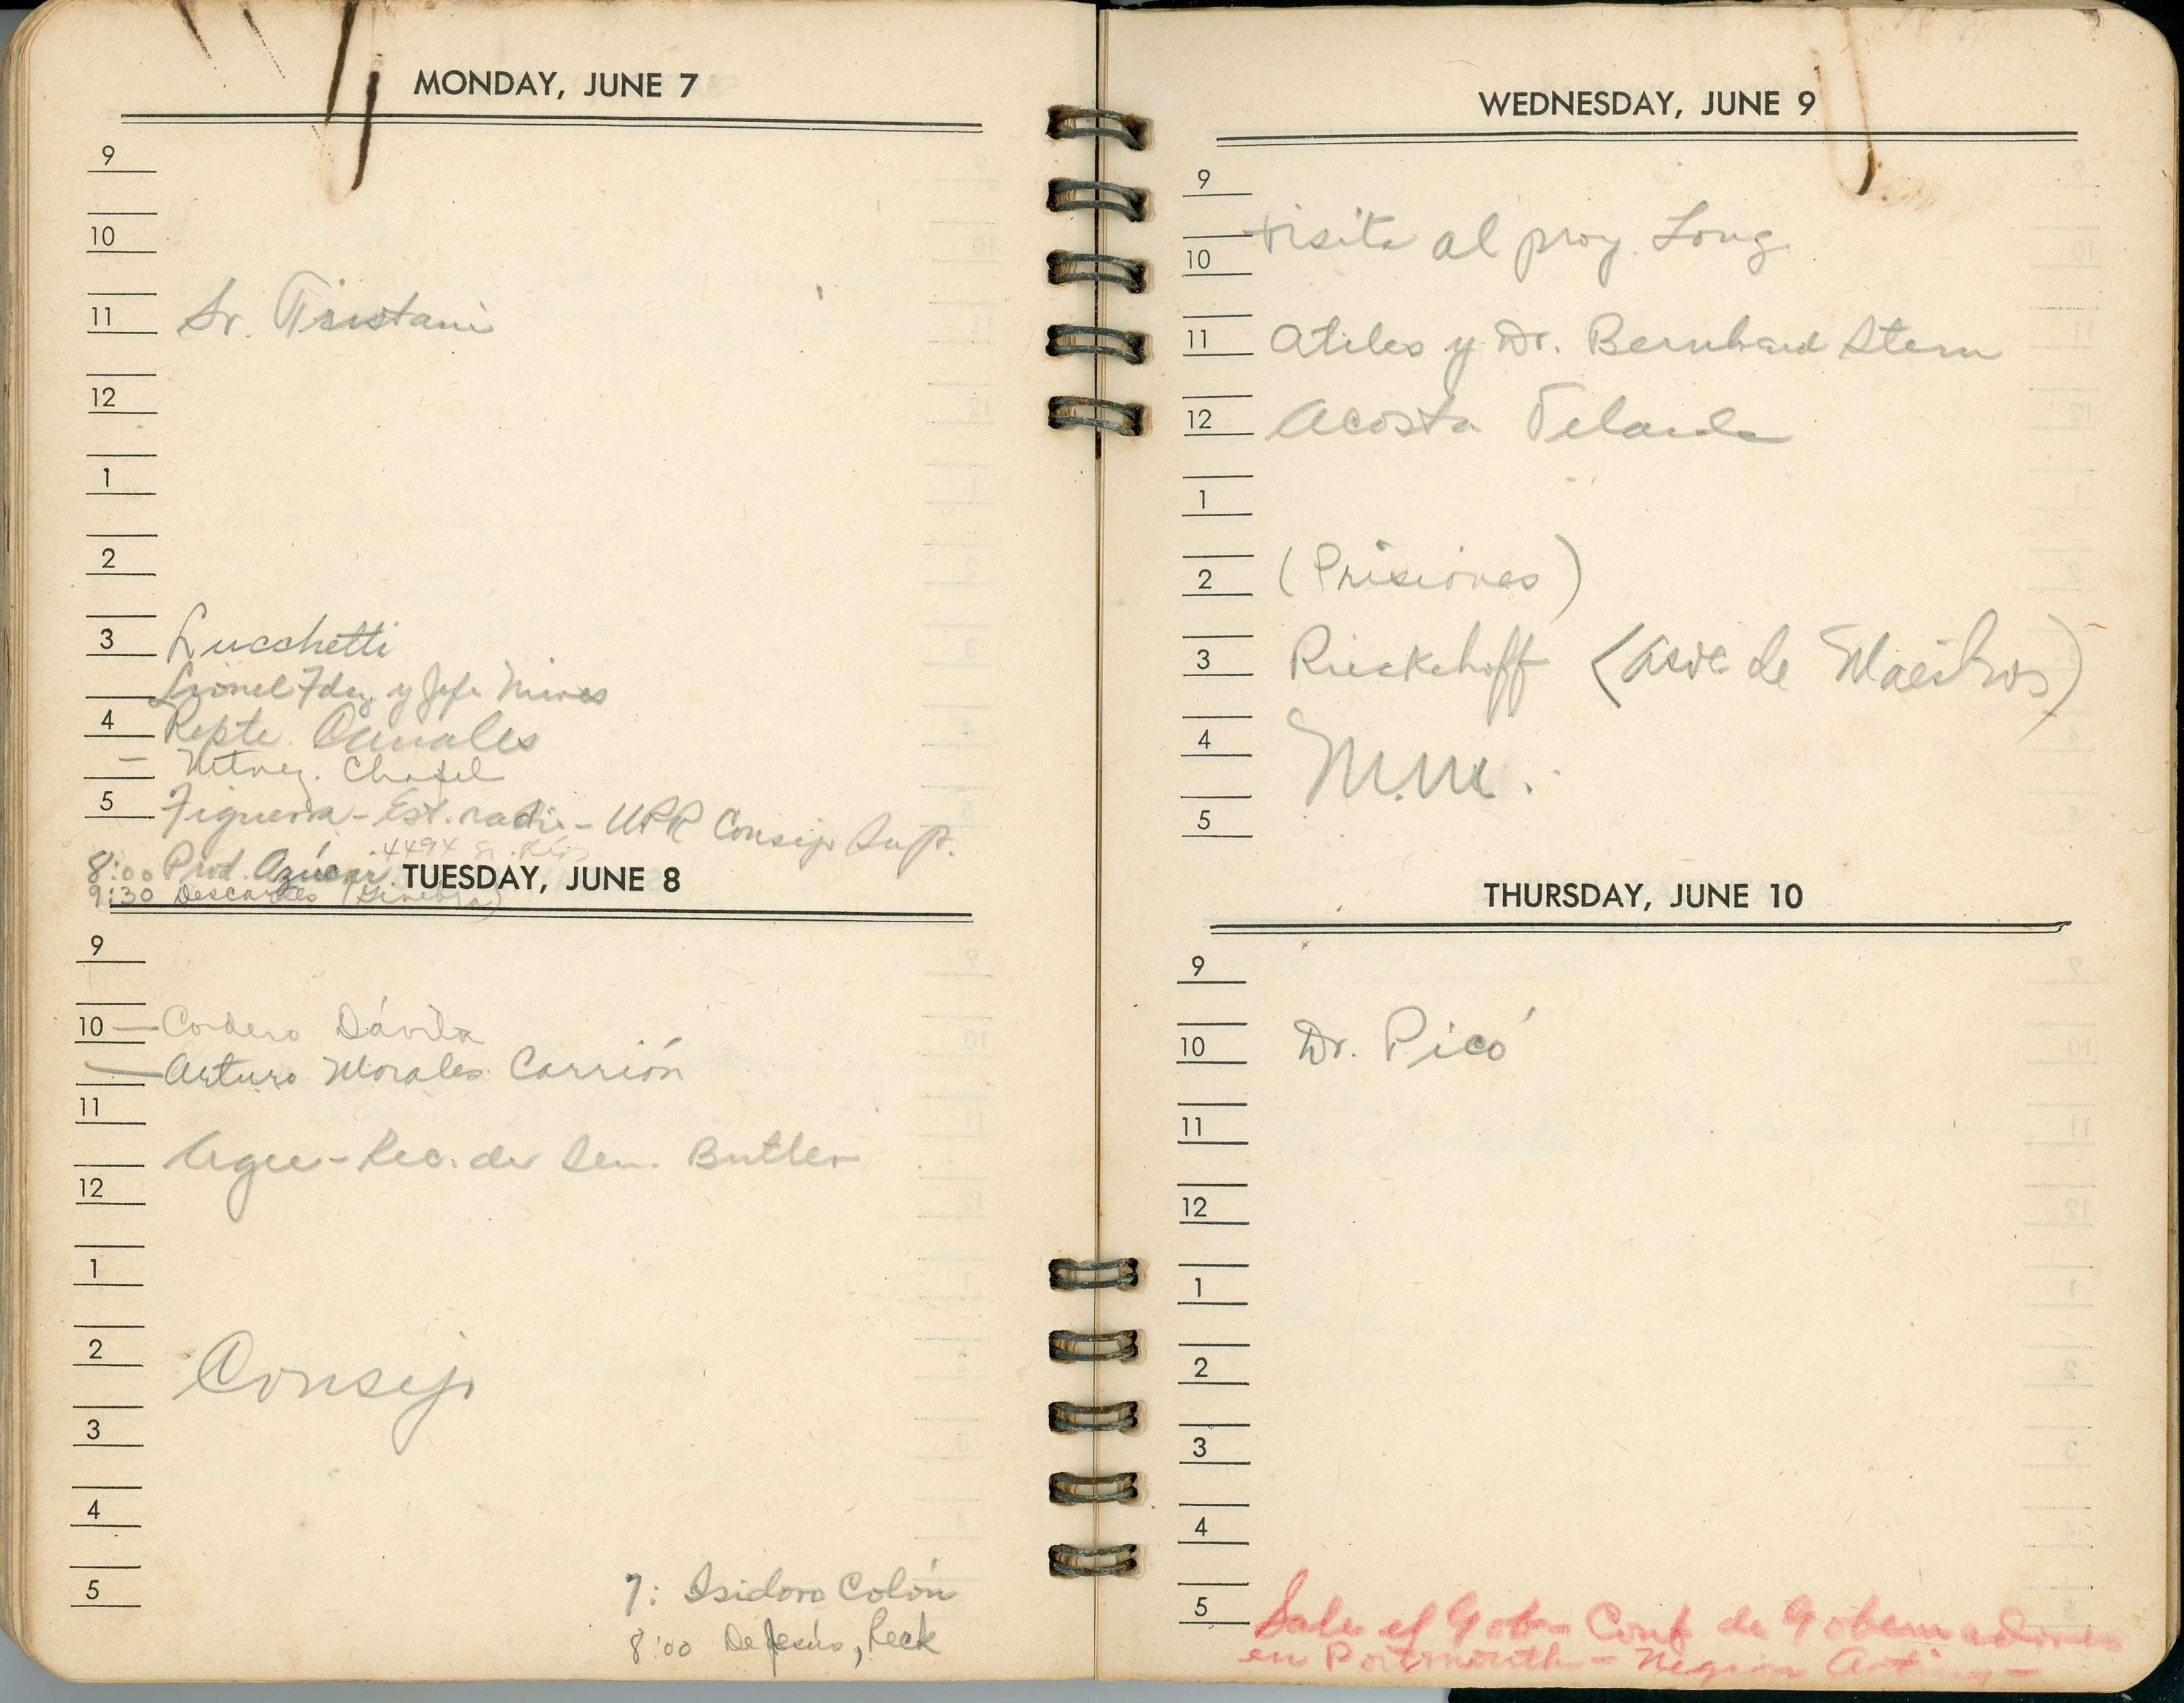 MONDAY, JUNE 7
9
10
11 Sr. Tristani
12
1
2
3 Lucchetti
Lionel Fdez y Jefe
4 Repte. Canales
- Chafel
5 Figueroa - Est. radio - UPR Consejo Sup.
4494
8:00 Prod. Azúcar
9:30 Descartes (Ginebra)
TUESDAY, JUNE 8
9
10 — Cordero Dávila
— Arturo Morales Carrión
11
Agee - Rec. de Sen. Butler
12
1
2 Consejo
3
4
5
7: Isidoro Colón
8:00 De Jesús, Peck
WEDNESDAY, JUNE 9
9
visita al proy. Long
10
11 Atiles y Dr. Bernhard Stern
12 Acosta Velarde
1
2 (Prisiones)
3 Rieckehoff (Asoc de Maestros)
4 M.M.
5
THURSDAY, JUNE 10
9
10 Dr. Picó
11
12
1
2
3
4
5 Sale el Gob. Conf de Gobernadores
en Portsmouth - Negrón Acting -